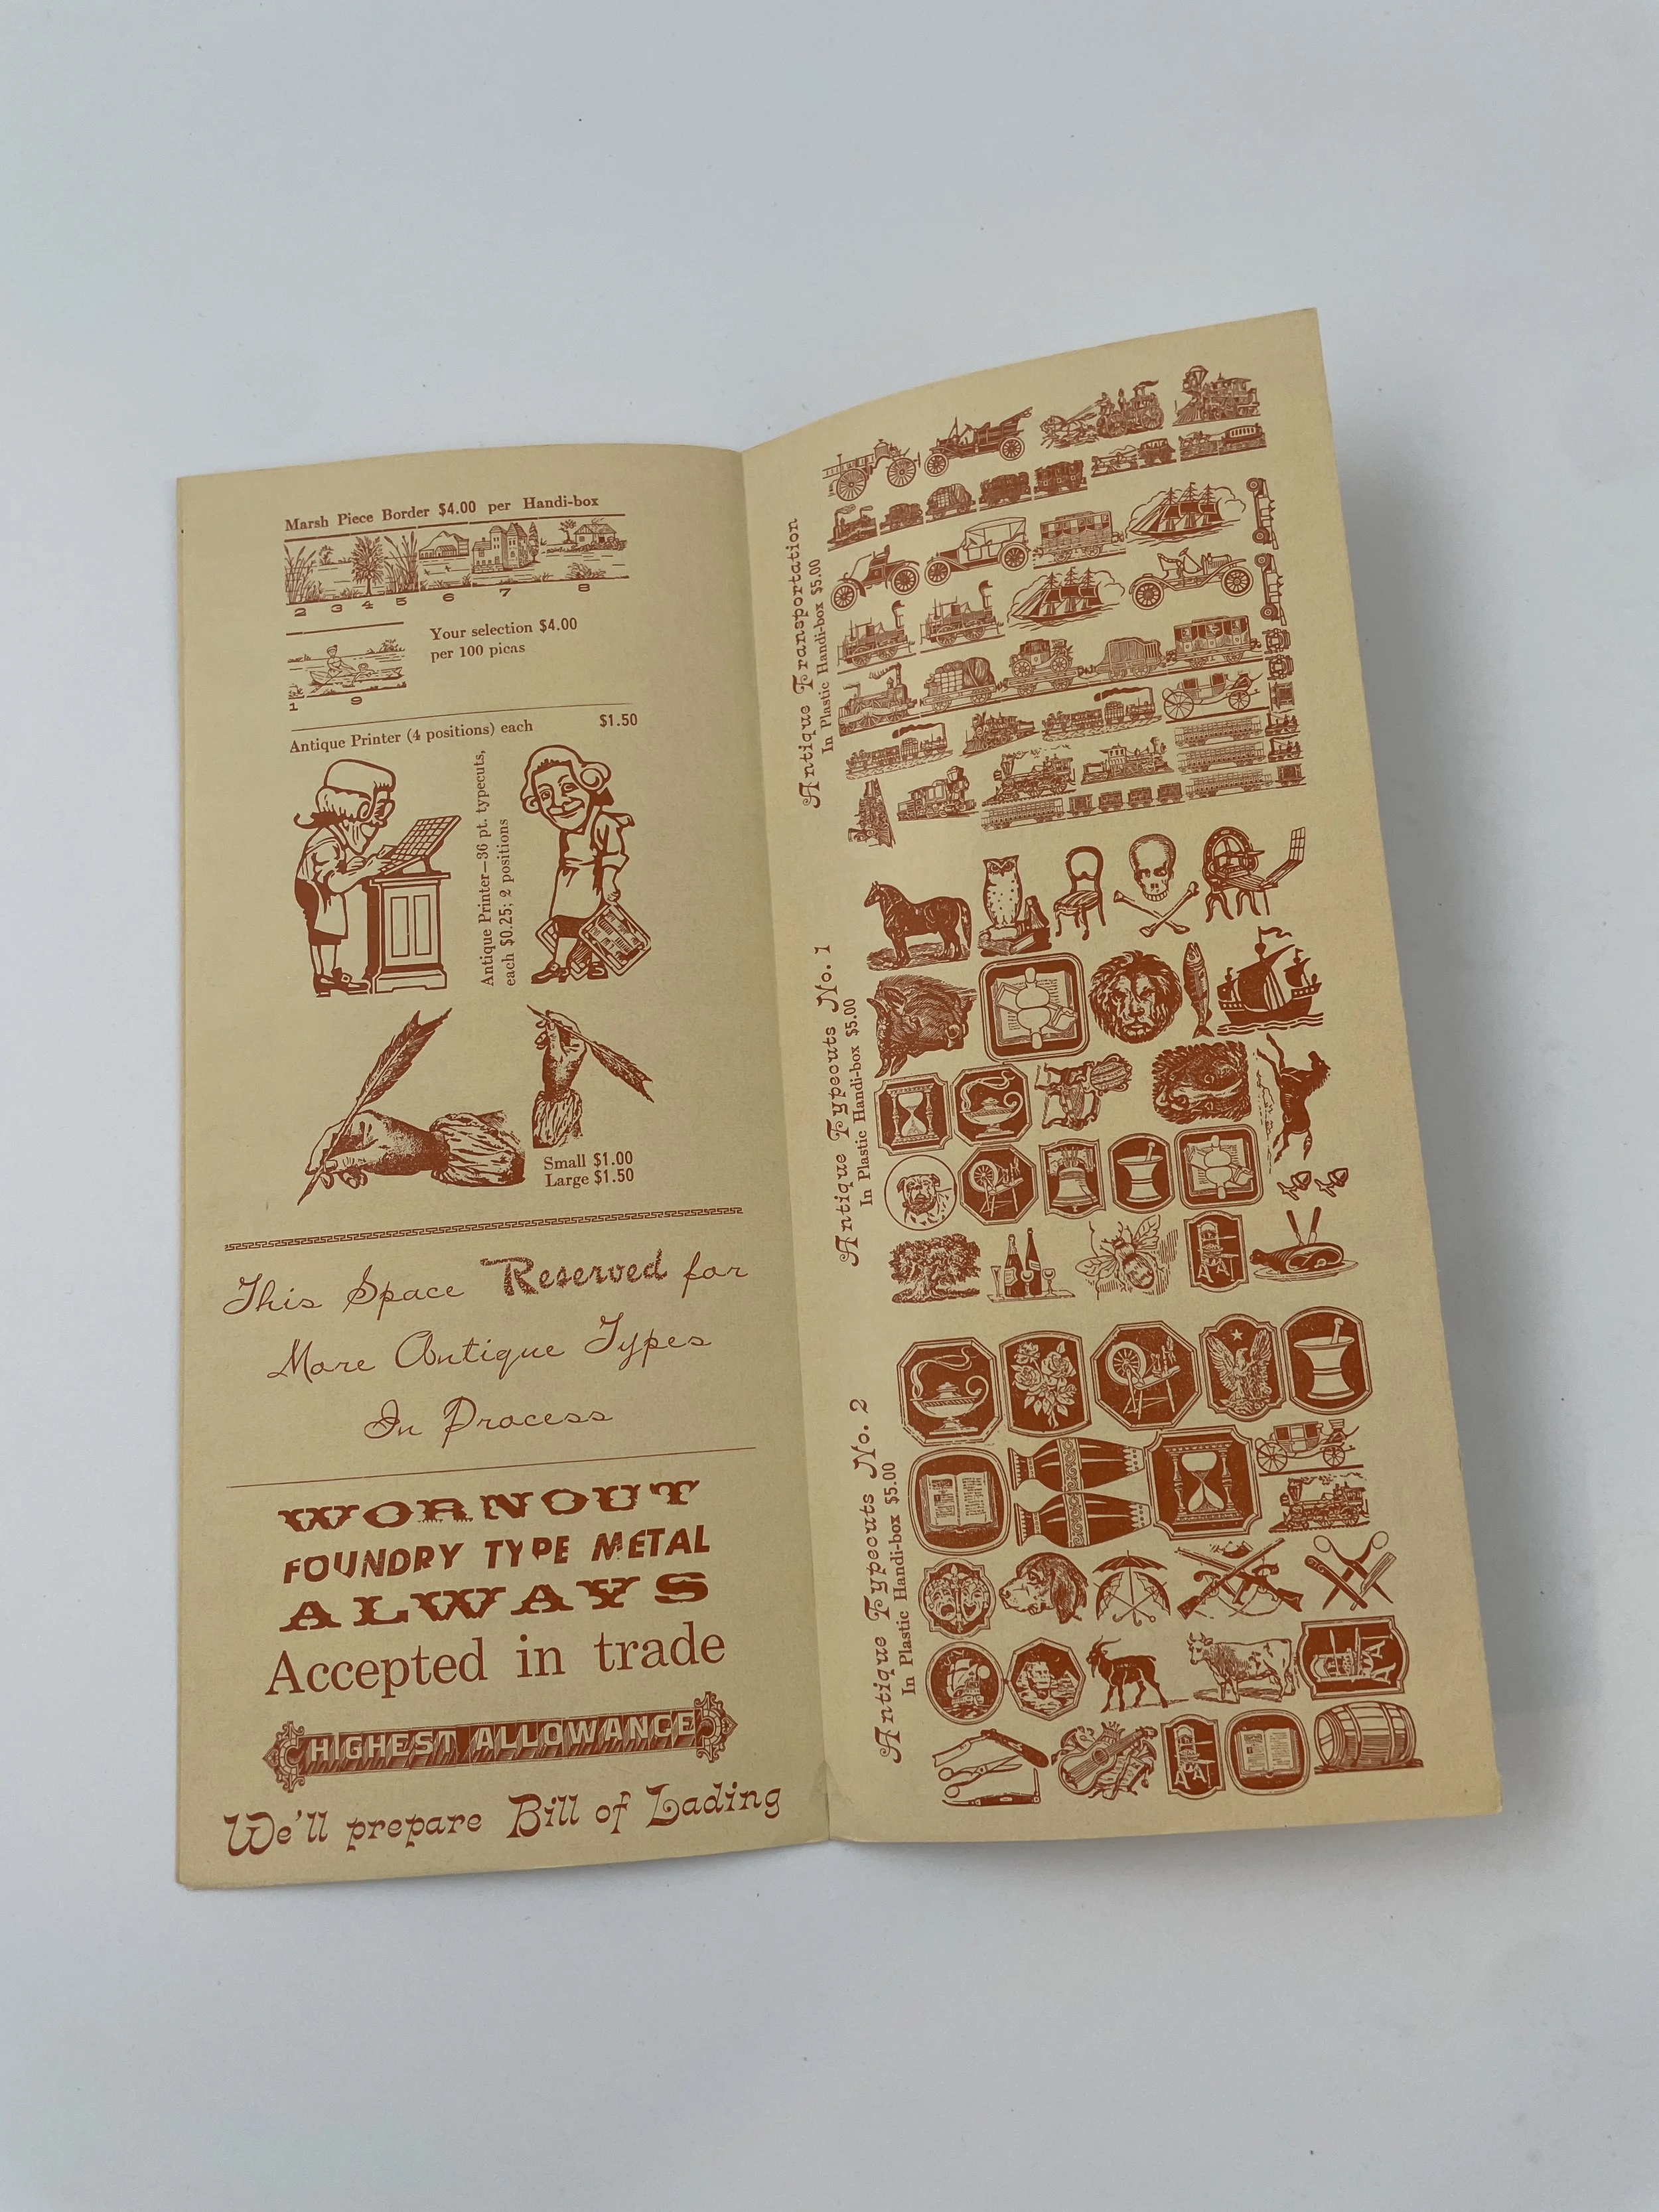 Marsh Piece Border $4.00 per Handi-box
2 3 4 5 6 7 8
Your selection $4.00
per 100 picas
1 9
Antique Printer (4 positions) each $1.50
Antique Printer—36 pt. typecuts,
each $0.25; 2 positions
Small $1.00
Large $1.50
This Space Reserved for
More Antique Types
In Process
WORNOUT
FOUNDRY TYPE METAL
ALWAYS
Accepted in trade
HIGHEST ALLOWANCE
We'll prepare Bill of Lading
Antique Transportation
In Plastic Handi-box $5.00
Antique Typecuts No. 1
In Plastic Handi-box $5.00
Antique Typecuts No. 2
In Plastic Handi-box $5.00